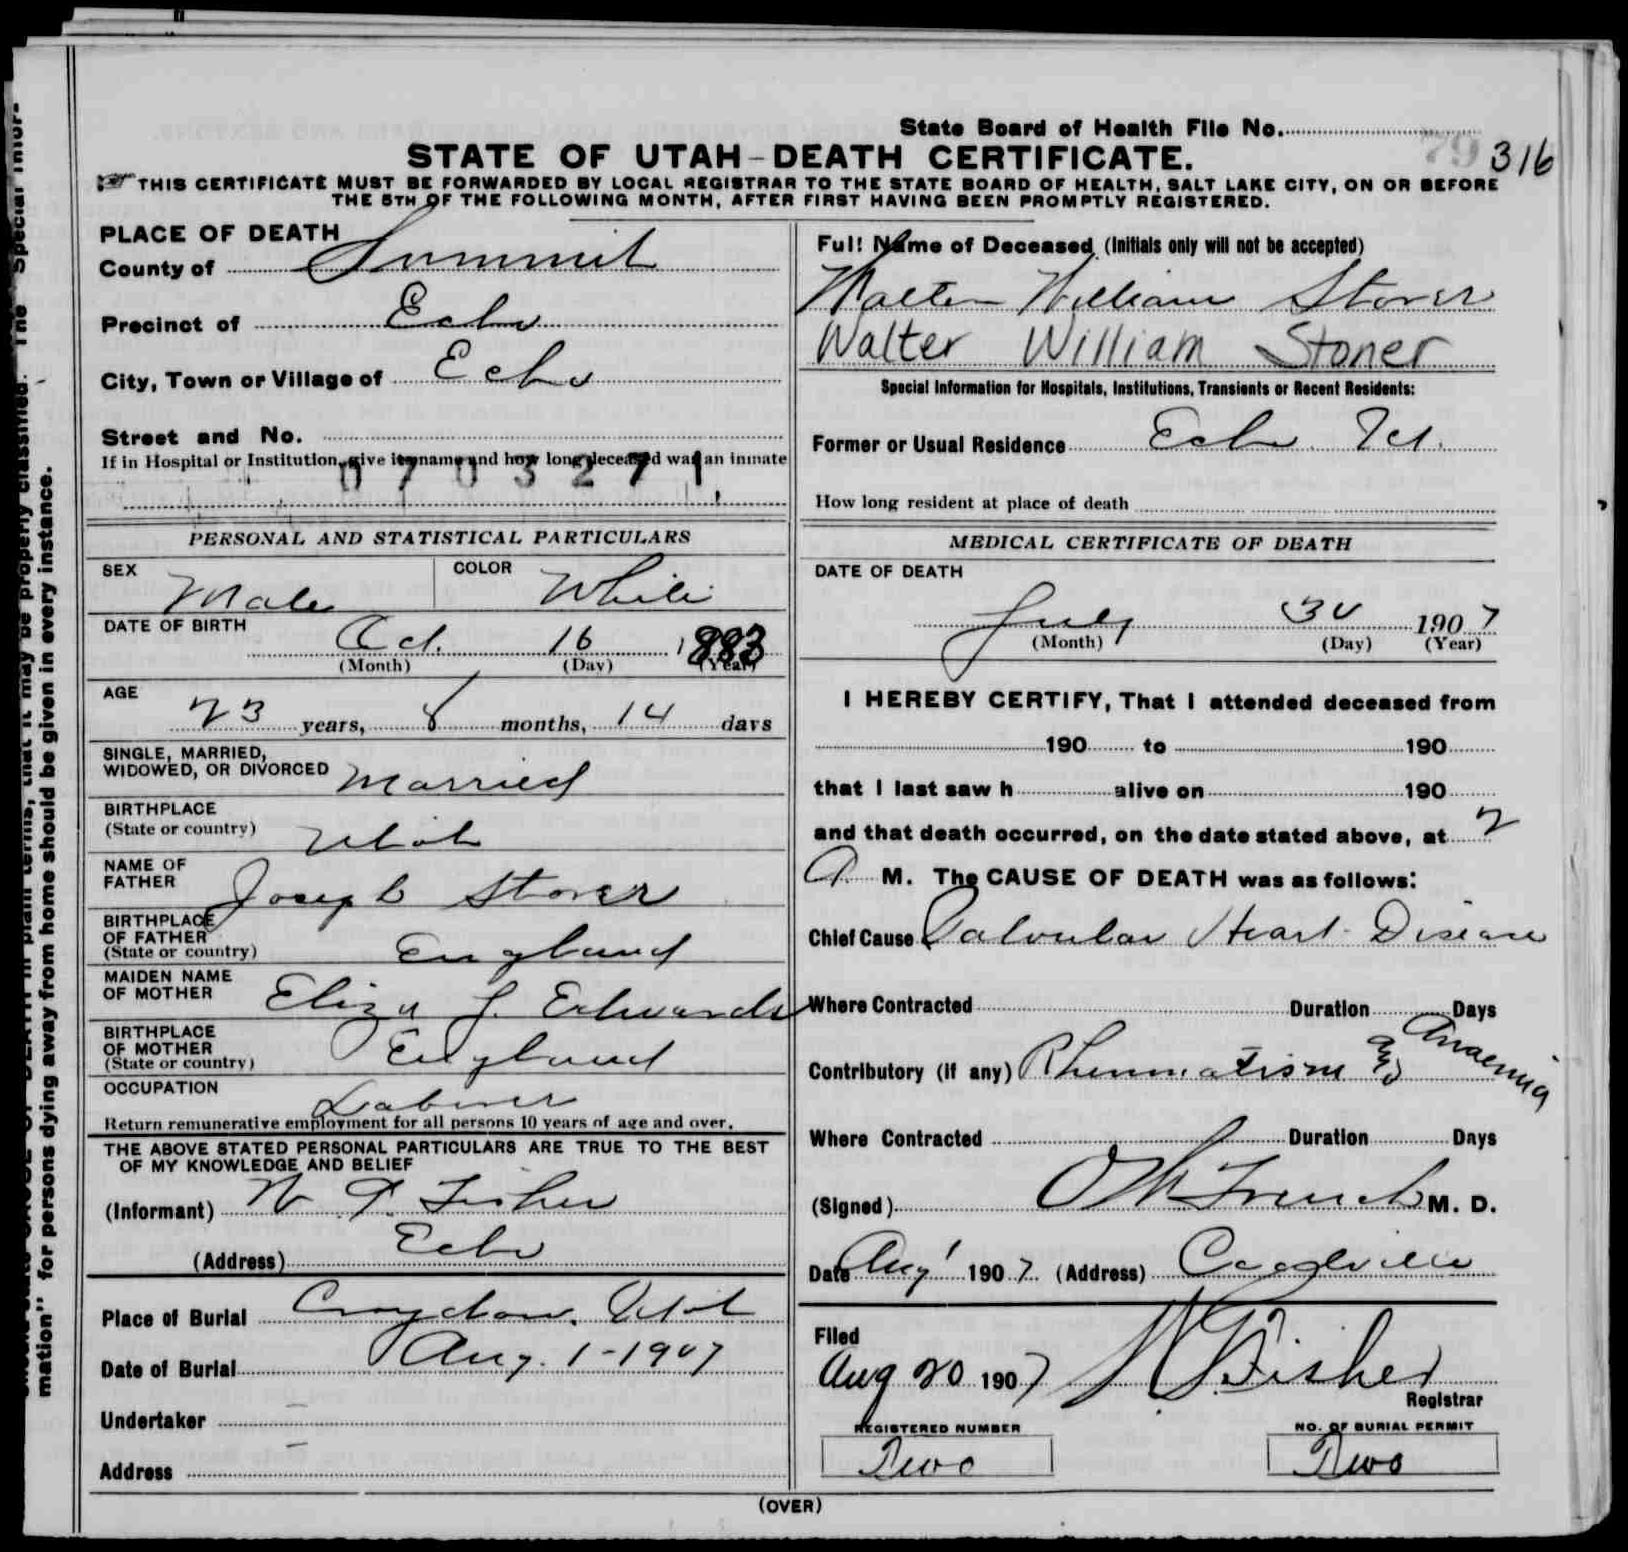 State Board of Health File No. 79 316
STATE OF UTAH-DEATH CERTIFICATE.
THIS CERTIFICATE MUST BE FORWARDED BY LOCAL REGISTRAR TO THE STATE BOARD OF HEALTH, SALT LAKE CITY, ON OR BEFORE
THE 5TH OF THE FOLLOWING MONTH, AFTER FIRST HAVING BEEN PROMPTLY REGISTERED.
PLACE OF DEATH
County of Summit
Precinct of Echo
City, Town or Village of Echo
Street and No.
If in Hospital or Institution, give its name and how long deceased was an inmate
0703271
PERSONAL AND STATISTICAL PARTICULARS
SEX Male COLOR White
DATE OF BIRTH Oct. 16 1883
(Month) (Day) (Year)
AGE 23 years, 8 months, 14 days
SINGLE, MARRIED,
WIDOWED, OR DIVORCED Married
BIRTHPLACE
(State or country) Utah
NAME OF
FATHER Joseph Stoner
BIRTHPLACE
OF FATHER
(State or country) England
MAIDEN NAME
OF MOTHER Eliza J. Edwards
BIRTHPLACE
OF MOTHER
(State or country) England
OCCUPATION Laborer
Return remunerative employment for all persons 10 years of age and over.
THE ABOVE STATED PERSONAL PARTICULARS ARE TRUE TO THE BEST
OF MY KNOWLEDGE AND BELIEF
(Informant) Fisher
(Address) Echo
Place of Burial Croydon, Utah
Date of Burial Aug. 1-1907
Undertaker
Address
Full Name of Deceased (Initials only will not be accepted)
Walter William Stoner
Walter William Stoner
Special Information for Hospitals, Institutions, Transients or Recent Residents:
Former or Usual Residence Echo Ut.
How long resident at place of death
MEDICAL CERTIFICATE OF DEATH
DATE OF DEATH
July 30 1907
(Month) (Day) (Year)
I HEREBY CERTIFY, That I attended deceased from
190 to 190
that I last saw h alive on 190
and that death occurred, on the date stated above, at 2
A M. The CAUSE OF DEATH was as follows:
Chief Cause Valvular Heart Disease
Where Contracted Duration Days
Contributory (if any) Rheumatism and Anaemia
Where Contracted Duration Days
(Signed) French M. D.
Date Aug 1 1907 (Address) Coalville
Filed
Aug 20 1907 Fisher
Registrar
REGISTERED NUMBER NO. OF BURIAL PERMIT
Two Two
(OVER)
mation" for persons dying away from home should be given in every instance.